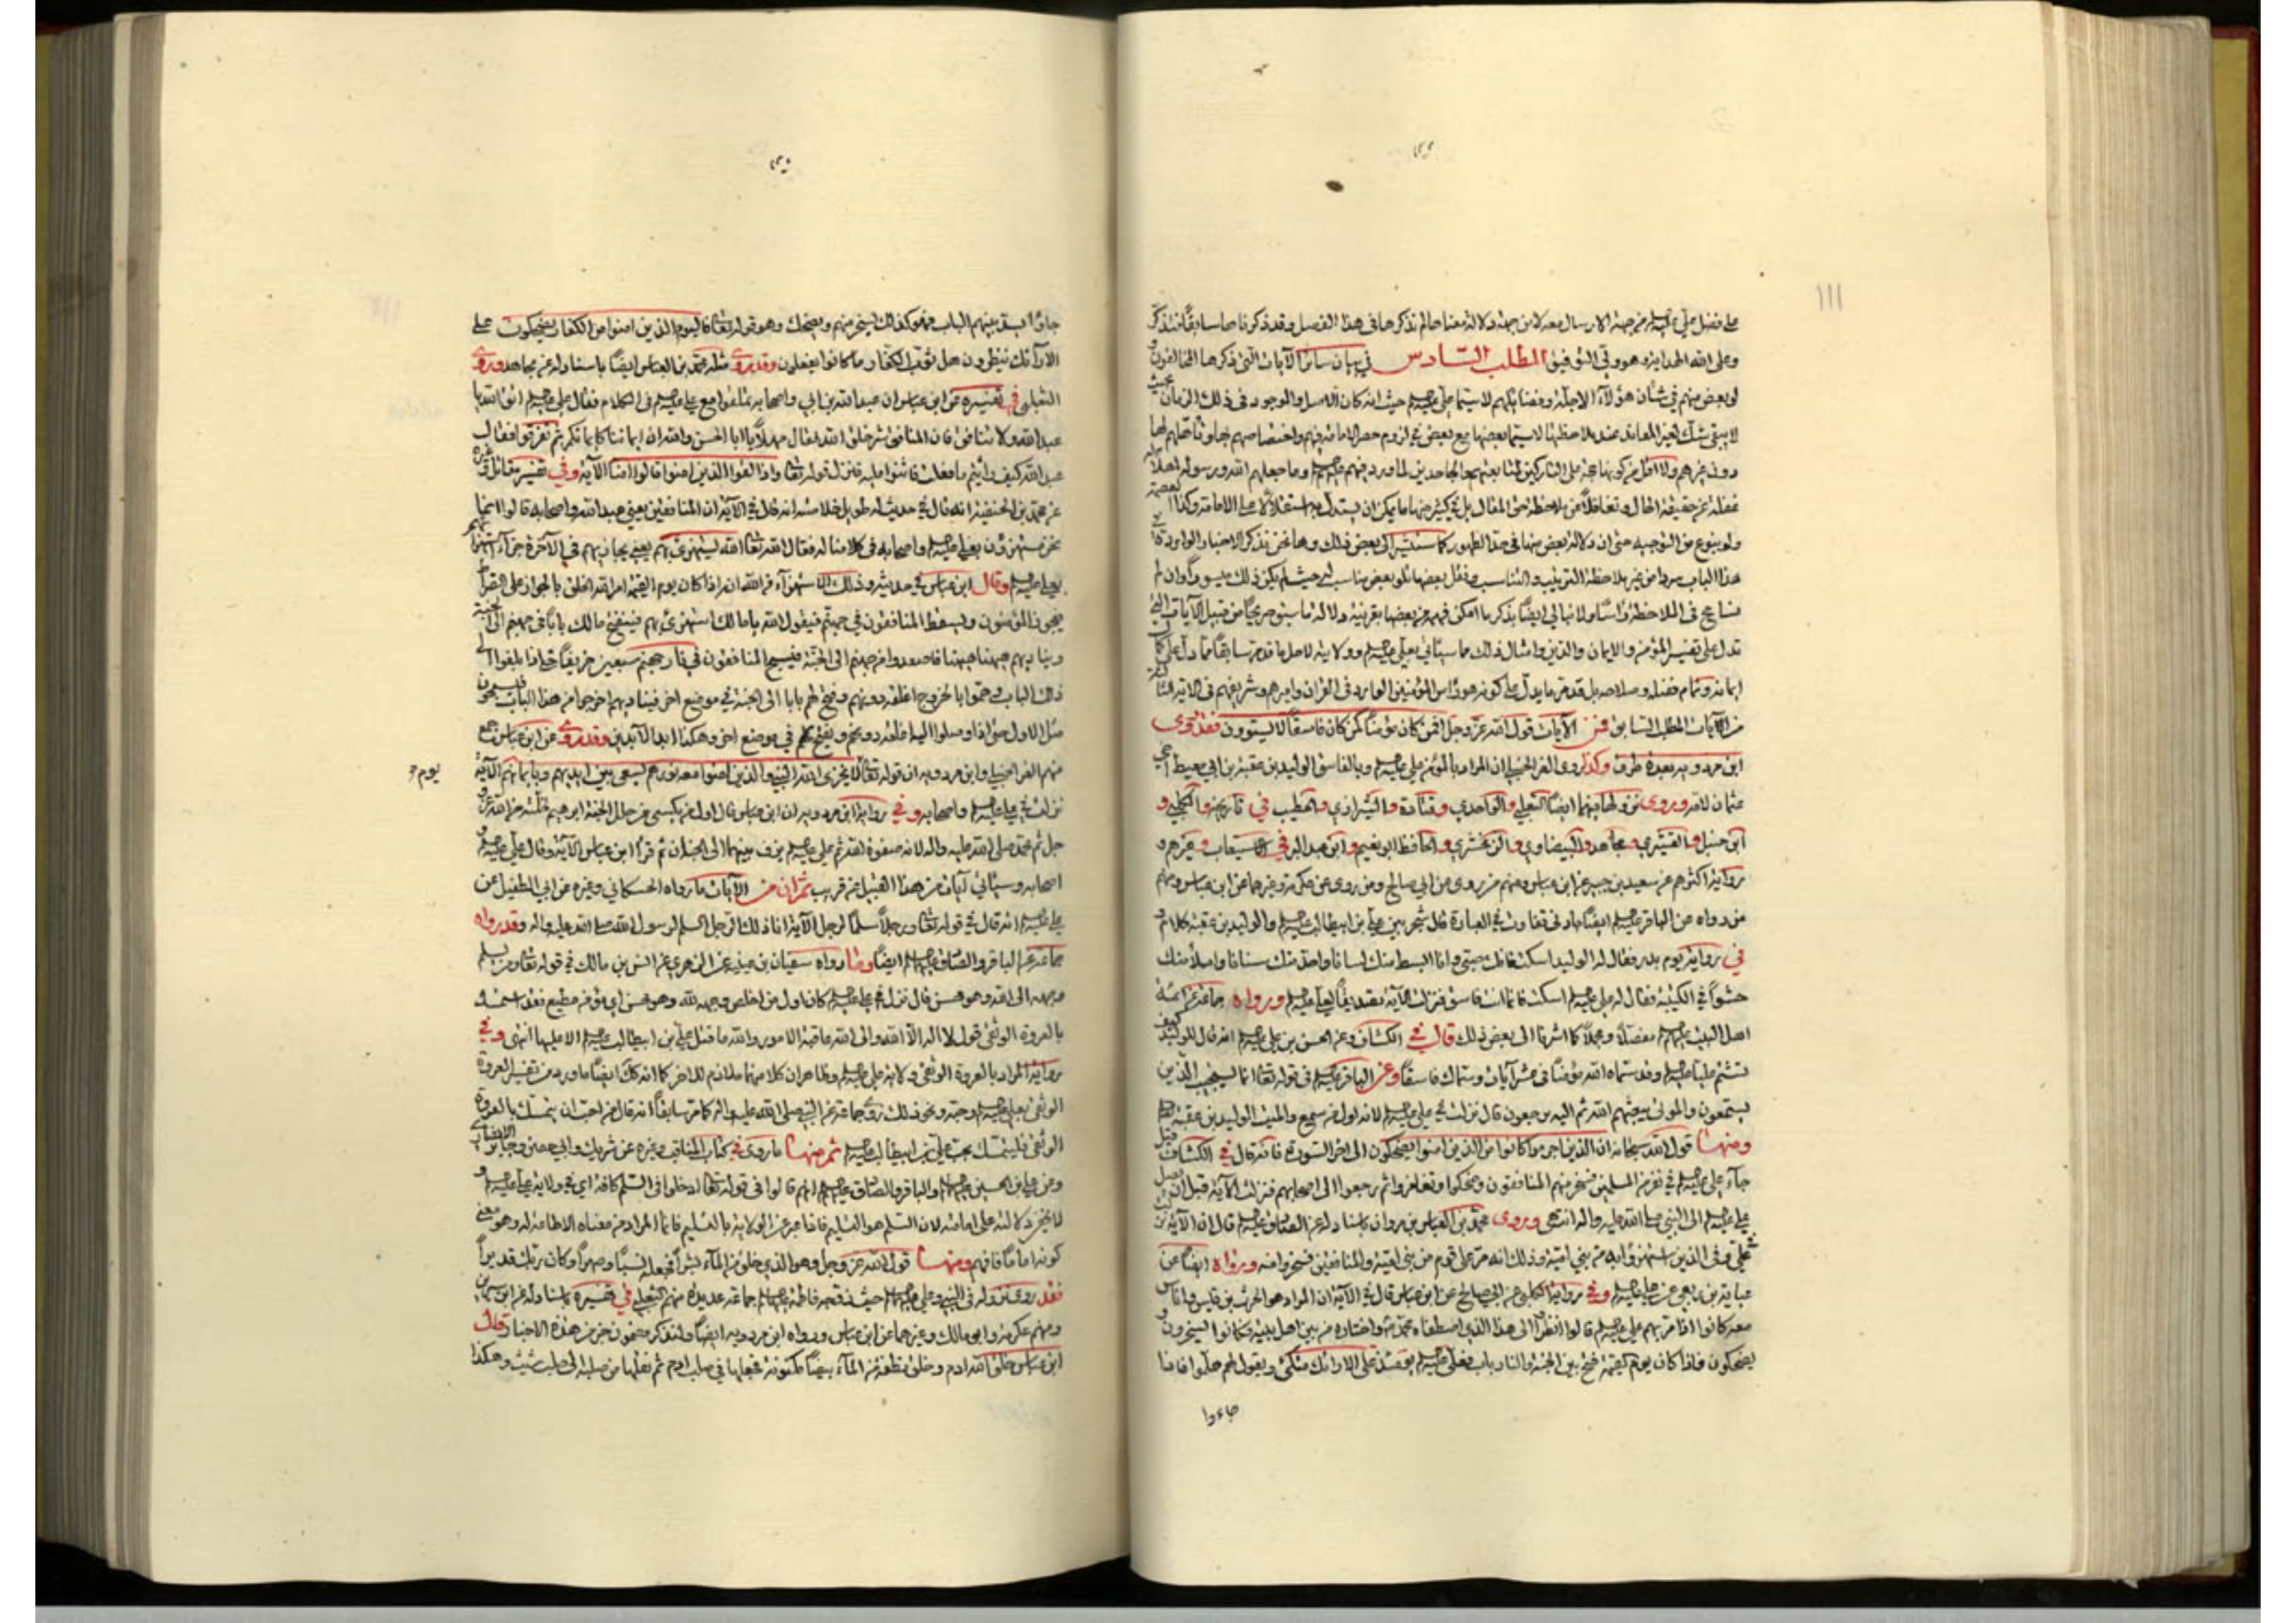 ١١١
على فضل علي عليه السلم من جهة الارسال معه لا من جهة دلالة معناها لم نذكرها فى هذا الفصل وقد ذكرناها سابقًا فتذكر
وعلى الله الهداية وهو ولي التوفيق المطلب السّادس في بيان سائر الآيات التي ذكرها المخالفون
او بعض منهم في شأن هؤلآء الاجلّة وفضائلهم لا سيّما علي عليه السلم حيث انه كان الاصل والموجود فى ذلك الزمان بحيث
لا يبقى شك لغير المعاند عند ملاحظتها لا سيّما بعضها مع بعض في لزوم حصر الامامة فيهم واختصاصهم بها
دون غيرهم ولا اقل من كونها حجة على التاركين لمتابعتهم والجاحدين لما ورد فيهم عليهم السلم وما جعلهم الله ورسوله اهلا له
غفلة عن حقيقة الحال وتغافلاً عن ملاحظة حق المقال بل في كثير منها ما يمكن ان يستدل به استقلالًا على الامامة وكذا العصمة
ولو بنوع من التوجيه حتى ان دلالة بعض منها فى حدّ الظهور كما سنشير الى بعض ذلك وها نحن نذكر الاخبار الواردة في
هذا الباب سردا من غير ملاحظة الترتيب والتناسب ونقل بعضها تلو بعض مناسب له حيث لم يكن ذلك ميسورًا وان لم
نسامح فى الملاحظة رأسًا ولا نبالي ايضًا بذكر ما امكن فهمه من بعضها بقرينة ودلالة ما سيتوضح من قبيل الآيات التي
تدل على تفسير المؤمن والايمان والدين وامثال ذلك مما سيأتي بعلي عليه السلم وولايته لاصل ما قد مر سابقًا مما دل على كمال
ايمانه وتمام فضله وصلاحه بل قد مر ما يدل على كونه هو رأس المؤمنين الوارد فى القرآن واميرهم وشريفهم فى الآية الثالثة
من آيات المطلب السابق فمن الآيات قول الله عزّ وجل افمن كان مؤمنًا كمن كان فاسقًا لا يستوون فقد روى
ابن مردويه بعدة طرق وكذا روى الفراء الحنبلي ان المراد بالمؤمن علي عليه السلم وبالفاسق الوليد بن عقبة بن ابي معيط اخي
عثمان لامه وروى نزولها فيهما ايضًا الثعلبي والواحدي وقتادة والشيرازي والخطيب في تاريخه والكلبي و
ابن حنبل والقشيري ومجاهد والبيضاوي والزمخشري والحافظ ابو نعيم وابن عبد البر في الاستيعاب وغيرهم و
رواية اكثرهم عن سعيد بن جبير عن ابن عباس ومنهم من روى عن ابي صالح ومن روى عن عكرمة وغيرهما عن ابن عباس ومنهم
من رواه عن الباقر عليه السلم ايضًا بادنى تفاوت في العبارة قال شجر بين علي بن ابيطالب عليه السلم والوليد بن عقبة كلام و
في رواية يوم بدر فقال له الوليد اسكت فانك صبي وانا ابسط منك لسانا واحد منك سنانا واملأ منك
حشوًا في الكتيبة فقال له علي عليه السلم اسكت فانما انت فاسق فنزلت الآية تصديقًا لعلي عليه السلم ورواه جماعة عن ائمة
اهل البيت عليهم السلم مفصلًا ومجملًا كما اشرنا الى بعض ذلك قال في الكشاف وعن الحسن بن علي عليه السلم انه قال للوليد كيف
تشتم عليًا عليه السلم وقد سمّاه الله مؤمنًا فى عشر آيات وسمّاك فاسقًا وعن الباقر عليه السلم فى قوله تعالى انما يستجيب الّذين
يستمعون والموتى يبعثهم الله ثم اليه يرجعون قال نزلت في علي عليه السلم لانه اول من سمع والميت الوليد بن عقبة
ومنها قول الله سبحانه ان الذين اجرموا كانوا من الذين امنوا يضحكون الى اخر السورة فانه قال في الكشاف قيل
جآء علي عليه السلم في نفر من المسلمين فسخر منهم المنافقون وضحكوا وتغامزوا ثم رجعوا الى اصحابهم فنزلت الآية قبل ان يصل
علي عليه السلم الى النبي صلى الله عليه واله انتهى وروى محمد بن العباس بن مروان باسناد له عن الصادق عليه السلم قال ان الآية نزلت
في علي وفى الذين استهزؤا به من بني اميّة وذلك انه مرّ على قوم من بني اميّة والمنافقين فسخروا منه ورواه ايضًا عن
عباية بن ربعي عن علي عليه السلم وفي رواية الكلبي عن ابي صالح عن ابن عباس قال في الآية ان المراد هو الحرث بن قيس واناس
معه كانوا اذا مر بهم علي عليه السلم قالوا انظروا الى هذا الذي اصطفاه محمد واختاره من بين اهل بيته فكانوا يسخرون و
يضحكون فاذا كان يوم القيمة فتح بين الجنة والنار باب فعلي عليه السلم يومئذ على الارائك متكئ ويقول لهم هلموا فاذا
جاءوا
جاؤا سدّ بينهم الباب فهو كذلك يسخر منهم ويضحك وهو قوله تعالى فاليوم الذين امنوا من الكفار يضحكون على
الارآئك ينظرون هل ثوّب الكفّار ما كانوا يفعلون وقد روى مثله محمّد بن العباس ايضًا باسناد له عن مجاهد وروى
الثعلبي في تفسيره عن ابن عباس ان عبد الله بن ابي واصحابه تملقوا مع علي عليه السلم فى الكلام فقال علي عليه السلم اتق الله يا
عبد الله ولا تنافق فان المنافق شر خلق الله فقال مهلًا يا ابا الحسن والله ان ايماننا كايمانكم ثم تفرقوا فقال
عبد الله كيف رأيتم ما فعلت فاثنوا عليه فانزل قوله تعالى واذا لقوا الذين امنوا قالوا امنّا الآية وفي تفسير مقاتل وغيره
عن محمد بن الحنفية انه قال في حديث له طويل خلاصته انه قال في الآية ان المنافقين يعني عبد الله واصحابه قالوا انما
نحن مستهزؤن بعلي عليه السلم واصحابه فى كلامنا له فقال الله تعالى الله يستهزئ بهم يعني يجازيهم في الآخرة جزآء استهزائهم
بعلي عليه السلم وقال ابن عباس في حديثه وذلك الاستهزآء من الله انه اذا كان يوم القيمة امر الله الخلق بالجواز على الصراط
فيجوز المؤمنون ويسقط المنافقون في جهنّم فيقول الله يا مالك استهزئ بهم فيفتح مالك بابًا في جهنم الى الجنة
ويناديهم ههنا ههنا فاصعدوا من جهنم الى الجنة فيسبح المنافقون في نار جهنم سبعين خريفًا حتى اذا بلغوا الى
ذلك الباب وهمّوا بالخروج اغلقه دونهم وفتح لهم بابا الى الجنة في موضع اخر فيناديهم اخرجوا من هذا الباب فيسبحون
مثل الاول حتى اذا وصلوا اليه اغلقه دونهم ويفتح لهم في موضع اخر وهكذا ابد الآبدين وقد روى عن ابن عباس جمع
منهم الفراء الحنبلي وابن مردويه ان قوله تعالى لا يخزي الله النبي والذين امنوا معه نورهم يسعى بين ايديهم وبايمانهم الآية
يوم
نزلت في علي عليه السلم واصحابه وفي رواية ابن مردويه ان ابن عباس قال اول من يكسى من حلل الجنة ابرهيم لخلّته من الله عزّ و
جل ثم محمّد صلى الله عليه واله لانه صفوة الله ثم علي عليه السلم يزف بينهما الى الجنان ثم قرأ ابن عباس الآية وقال علي عليه السلم و
اصحابه وسيأتي آيات من هذا القبيل عن قريب ثم ان من الآيات ما رواه الحسكاني وغيره عن ابي الطفيل عن
علي عليه السلم انه قال في قوله تعالى ورجلًا سلمًا لرجل الآية انا ذلك الرجل السلم لرسول الله صلى الله عليه واله وقد رواه
جماعة عن الباقر والصادق عليهما السلم ايضًا ومنها ما رواه سفيان بن عيينه عن الزهري عن انس بن مالك في قوله تعالى ومن يسلم
وجهه الى الله وهو محسن قال نزل في علي عليه السلم كان اول من اخلص وجهه لله وهو محسن اي مؤمن مطيع فقد استمسك
بالعروة الوثقى قول لا اله الّا الله والى الله عاقبة الامور والله ما قتل علي بن ابيطالب عليه السلم الا عليها انتهى وفي
رواية المراد بالعروة الوثقى ولاية علي عليه السلم وظاهر ان كلا منهما ملازم للاخر كما انه كك ايضًا ما ورد من تفسير العروة
الوثقى بعلي عليه السلم وحبّه ونحو ذلك روى جماعة عن النبي صلى الله عليه واله كما مر سابقًا انه قال من احب ان يتمسك بالعروة
الوثقى فليتمسك بحب علي بن ابيطالب عليه السلم ثم منها ما روى في كتاب المناقب وغيره عن شريك وابي حفص وجابر الانصاري
وعن علي بن الحسين عليهما السلم والباقر والصادق عليهما السلم انهم قالوا فى قوله تعالى ادخلوا فى السّلم كافة اي في ولاية علي عليه السلم و
لا يخفى دلالته على امامته لان السّلم هو التسليم فاذا عبر عن الولاية بالتسليم فانما المراد من معناه الاطاعة له وهو معنى
كونه امامًا فافهم ومنها قول الله عزّ وجل وهو الذي خلق من المآء بشرًا فجعله نسبًا وصهرًا وكان ربّك قديرًا
فقد روى نزوله فى النبي وعلي عليهما السلم حيث زوّجه فاطمة عليها السلم جماعة عديدة منهم الثعلبي في تفسيره باسناد له عن ابن سيرين
ومنهم عكرمة وابو مالك وغيرهما عن ابن عباس ورواه ابن مردويه ايضًا ولنذكر مضمون خبر من هذه الاخبار قال
ابن عباس خلق الله ادم وخلق نطفة من المآء بيضآء مكنونة فجعلها في صلب ادم ثم نقلها من صلبه الى صلب شيث وهكذا